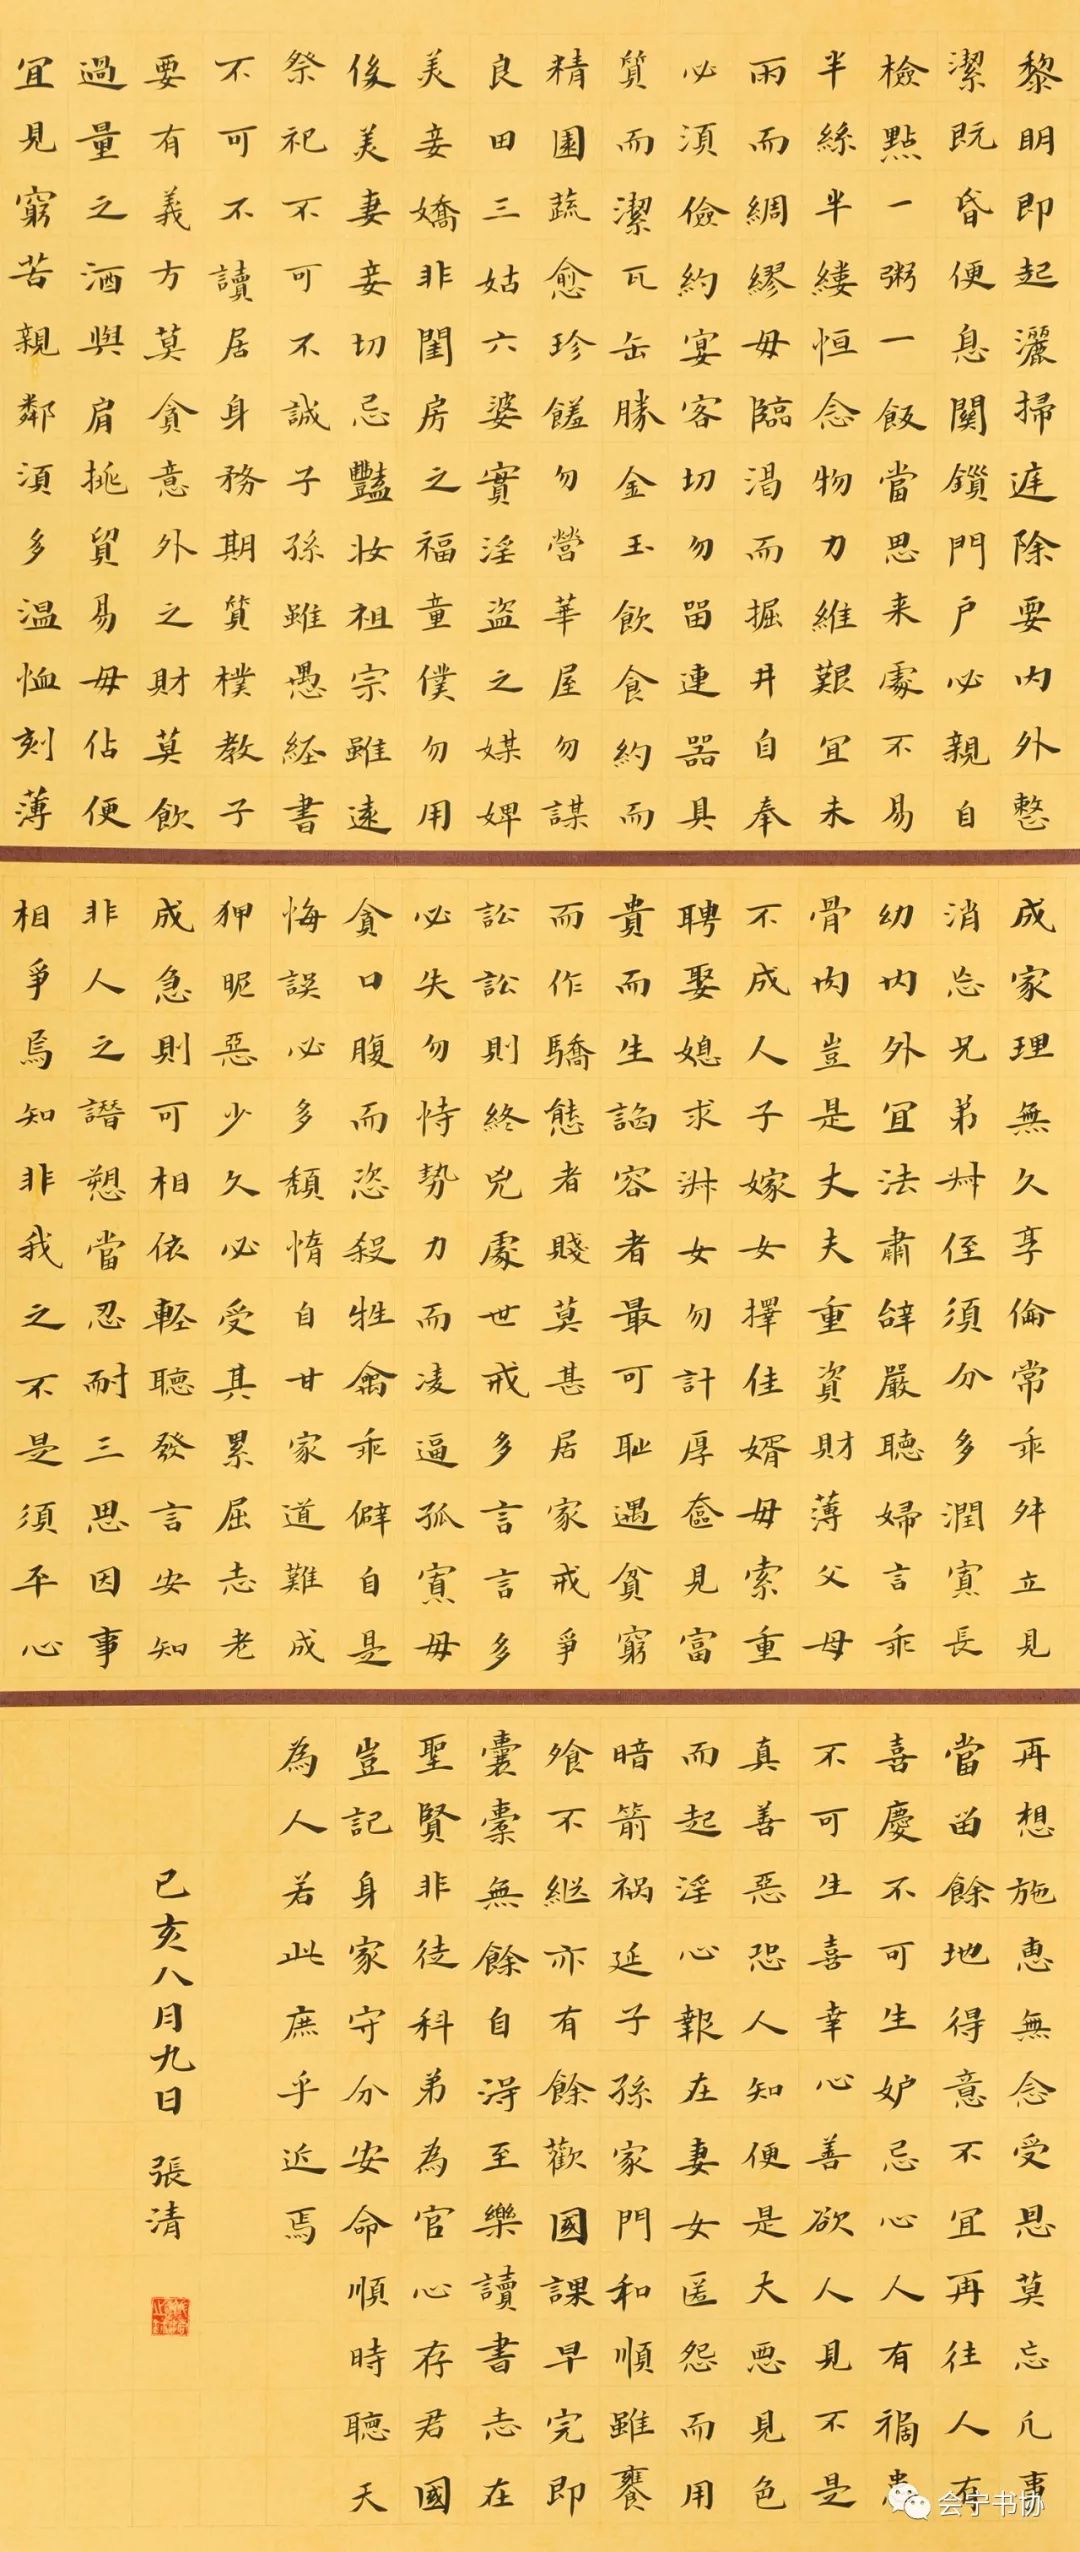 黎明即起灑掃庭除要内外整
潔既昏便息關鎖門户必親自
檢點一粥一飯當思来處不易
半絲半縷恒念物力維艱宜未
雨而綢繆毋臨渴而掘井自奉
必須儉約宴客切勿畱連器具
質而潔瓦缶勝金玉飲食約而
精園蔬愈珍饈勿營華屋勿謀
良田三姑六婆實淫盗之媒婢
美妾嬌非閨房之福童僕勿用
俊美妻妾切忌豔妝祖宗雖遠
祭祀不可不誠子孫雖愚經書
不可不讀居身務期質樸教子
要有義方莫貪意外之財莫飲
過量之酒與肩挑貿易毋佔便
宜見窮苦親鄰須多温恤刻薄
成家理無久享倫常乖舛立見
消忘兄弟叔侄須分多潤寡長
幼内外宜法肅辭嚴聽婦言乖
骨肉豈是丈夫重資財薄父母
不成人子嫁女擇佳婿毋索重
聘娶媳求淑女勿計厚奩見富
貴而生諂容者最可耻遇貧窮
而作驕態者賤莫甚居家戒爭
訟訟則終兇處世戒多言言多
必失勿恃勢力而凌逼孤寡毋
貪口腹而恣殺牲禽乖僻自是
悔誤必多頹惰自甘家道難成
狎昵惡少久必受其累屈志老
成急則可相依輕聽發言安知
非人之譖愬當忍耐三思因事
相爭焉知非我之不是須平心
再想施惠無念受恩莫忘凡事
當畱餘地得意不宜再往人有
喜慶不可生妒忌心人有禍患
不可生喜幸心善欲人見不是
真善惡恐人知便是大惡見色
而起淫心報在妻女匿怨而用
暗箭禍延子孫家門和順雖饔
飧不継亦有餘歡國課早完即
囊橐無餘自得至樂讀書志在
聖賢非徒科第為官心存君國
豈記身家守分安命順時聽天
為人若此庶乎近焉
己亥八月九日 張清
会宁书协